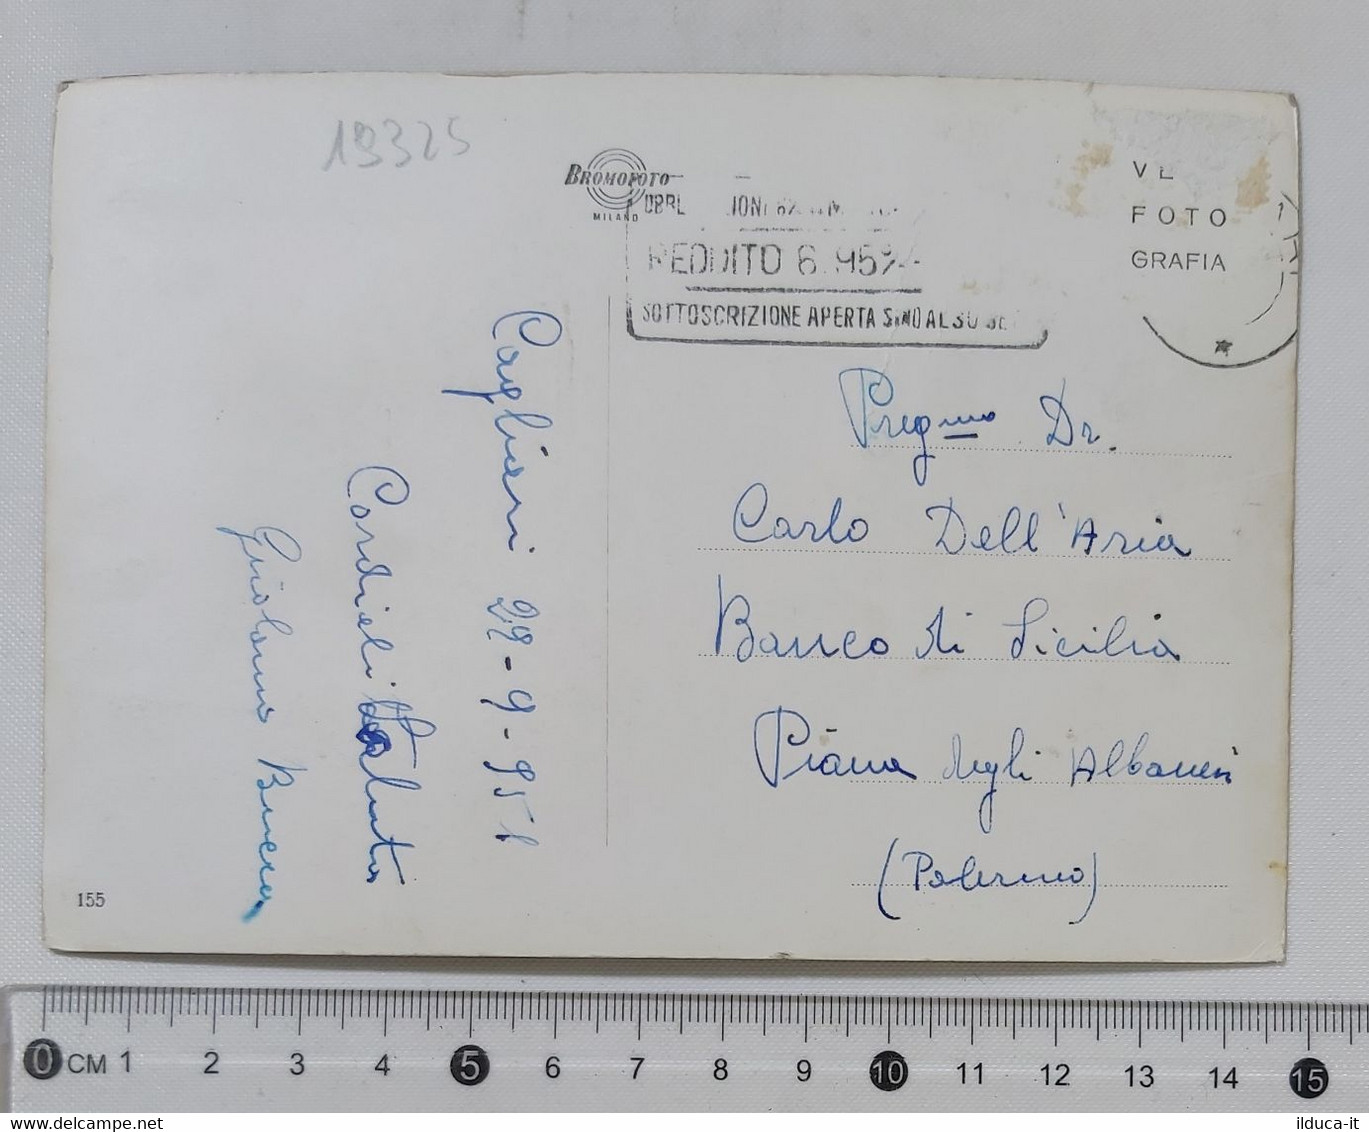 19325
BROMOFOTO
MILANO
REDDITO 6.95%
SOTTOSCRIZIONE APERTA SINO AL 30
FOTO
GRAFIA
Cagliari 29-9-951
Cordiali Saluti
Girolamo
155
Preg.mo Dr.
Carlo Dell'Aria
Banco di Sicilia
Piana degli Albanesi
(Palermo)
0 CM 1 2 3 4 5 6 7 8 9 10 11 12 13 14 15
www.delcampe.net
ilduca-it